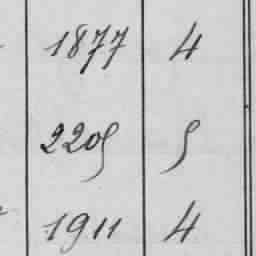 1877 4
2205 5
1911 4